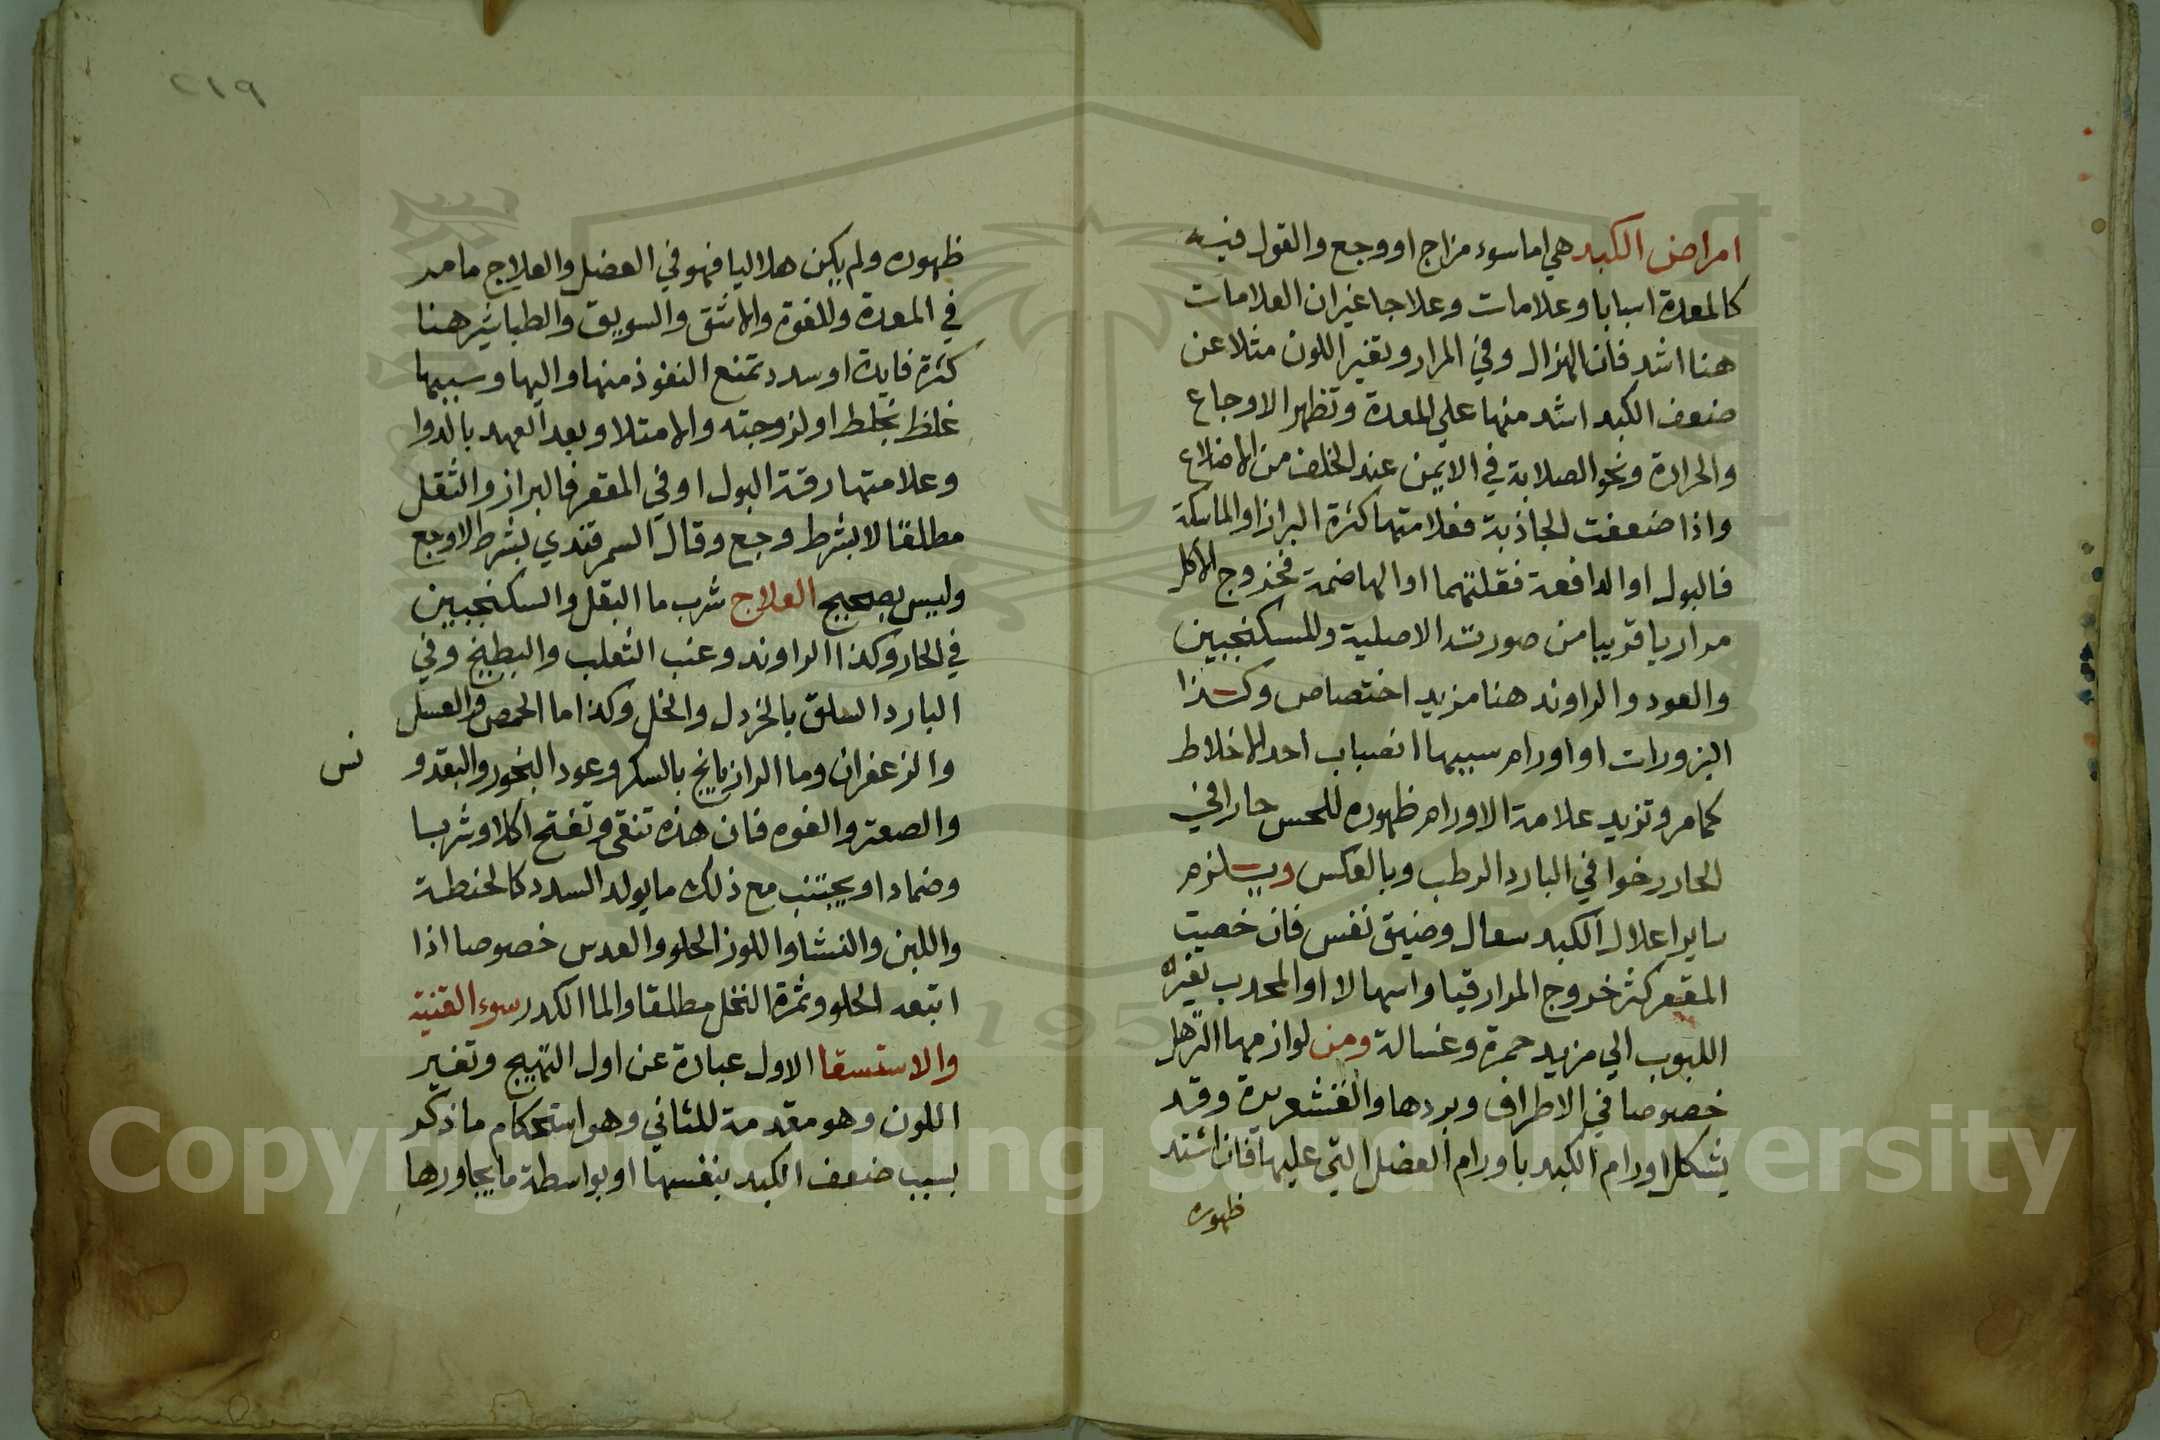 امراض الكبد هي اما سوء مزاج او وجع والقول فيه
كالمعدة اسبابا وعلامات وعلاجا غير ان العلامات
هنا اشد فان الهزال وفي المرار وتغير اللون مثلا عن
ضعف الكبد اشد منها علي المعدة وتظهر الاوجاع
والحرارة ونحو الصلابة في الايمن عند الخلف من الاضلاع
واذا ضعفت الجاذبة فعلامتها كثرة البراز او الماسكة
فالبول او الدافعة فقلتهما او الهاضمة فخروج الاكل
مراريا قريبا من صورته الاصلية وللسكنجبين
والعود والراوند هنا مزيد اختصاص وكذا
البزورات او اورام سببها انصباب احد الاخلاط
كما مر وتزيد علامة الاورام ظهوره للحس حارا في
الحار رخوا في البارد الرطب وبالعكس ويلزم
ساير اعلال الكبد سعال وضيق نفس فان خصيت
المقعر كثر خروج المرار قيا واسهالا او المحدب تغير
اللبوب الي مزيد حمرة وغسالة ومن لوازمها الترهل
خصوصا في الاطراف وبردها والقشعريرة وقد
يشكل اورام الكبد باورام العضل التي عليها فان اشتد
ظهوره
٢١٩
ظهوره ولم يكن هلاليا فهو في العضل والعلاج ما مر
في المعدة وللفوة والاشق والسويق والطباشير هنا
كثرة فايدة او سدد تمنع النفوذ منها واليها وسببها
غلظ بخلط او لزوجته والامتلا وبعد العهد بالدوا
وعلامتها رقة البول او في المقعر فالبراز والثقل
مطلقا لا بشرط وجع وقال السمرقندي بشرط لا وجع
وليس بصحيح العلاج شرب ما البقل والسكنجبين
في الحار وكذا الراوند وعنب الثعلب والبطيخ وفي
البارد السلق بالخردل والخل وكذا ما الحمص والعسل
والزعفران وما الرازيانج بالسكر وعود البخور والبقدو
نس
والصعتر والفوه فان هذه تنقي وتفتح اكلا وشربا
وضمادا ويجتنب مع ذلك ما يولد السدد كالحنطة
واللبن والنشا واللوز الحلو والعدس خصوصا اذا
اتبعه الحلو وثمرة النخل مطلقا والما الكدر سوء القنية
والاستسقا الاول عبارة عن اول التهيج وتغير
اللون وهو مقدمة للثاني وهو استحكام ما ذكر
بسبب ضعف الكبد بنفسها او بواسطة ما يجاورها
Copyright © King Saud University